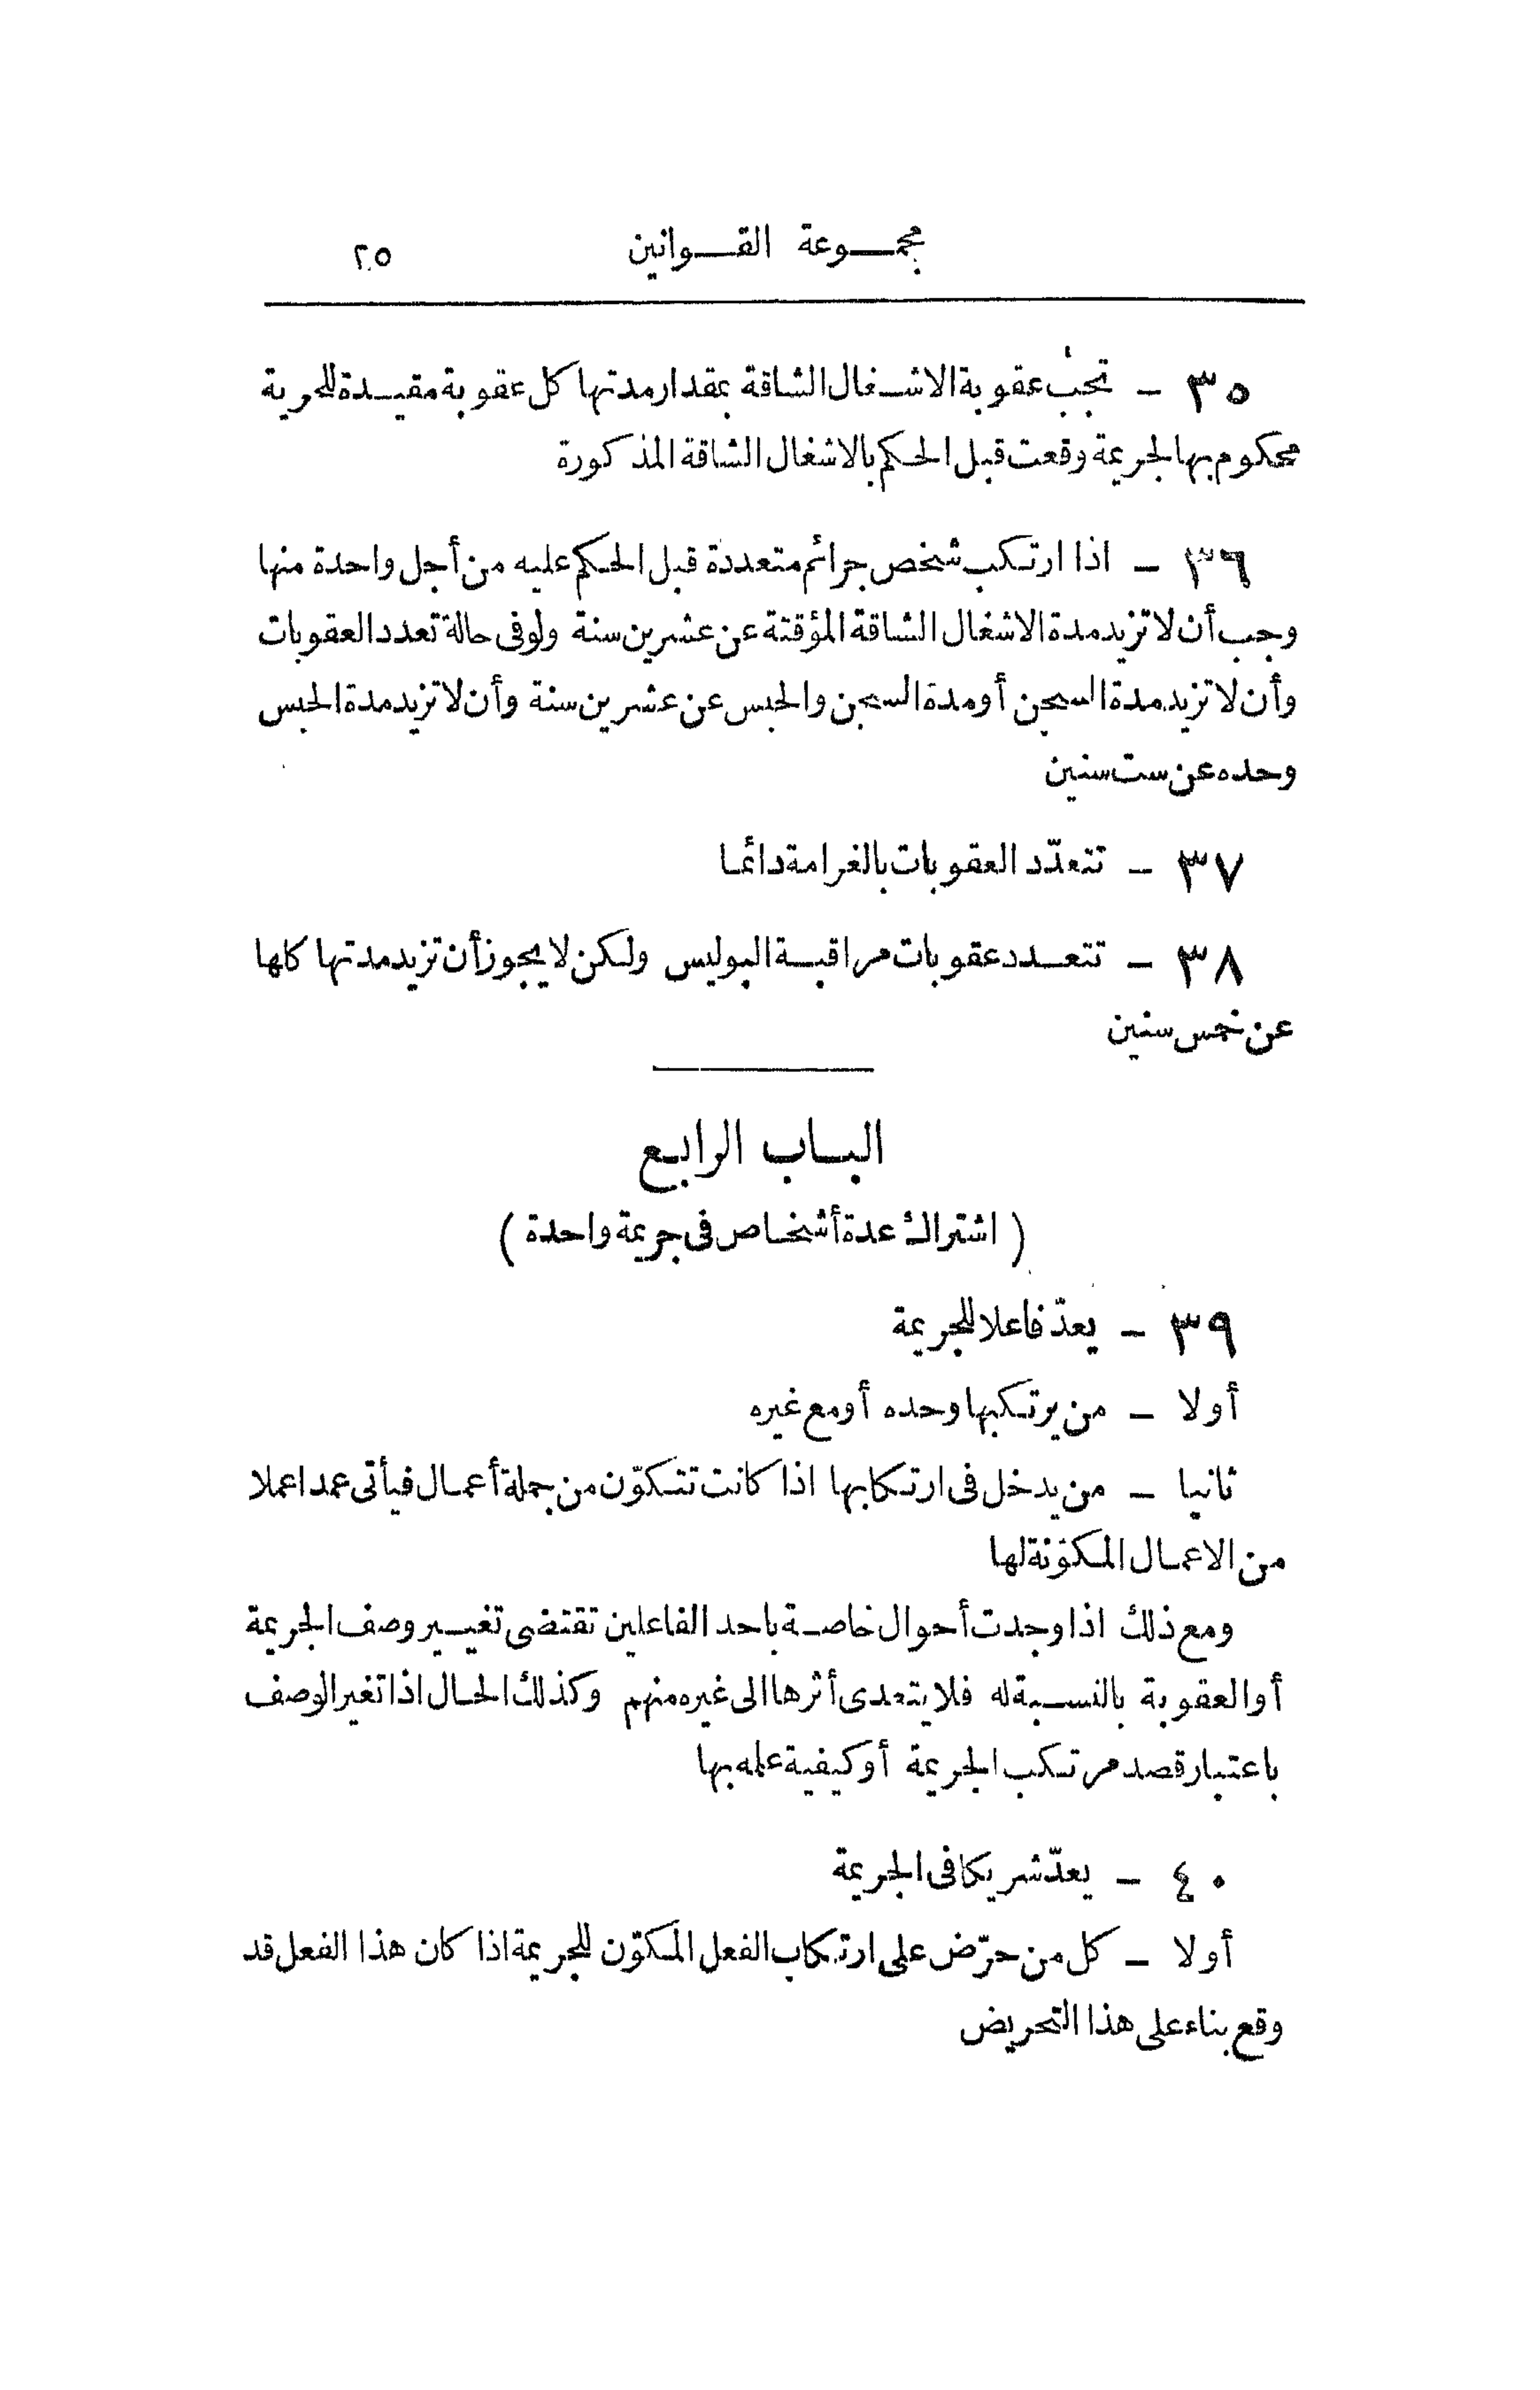 مجموعة القوانين ٢٥
٣٥ – تجب عقوبة الاشغال الشاقة بمقدار مدتها كل عقوبة مقيدة للحرية
محكوم بها لجريمة وقعت قبل الحكم بالاشغال الشاقة المذكورة
٣٦ – اذا ارتكب شخص جرائم متعددة قبل الحكم عليه من أجل واحدة منها
وجب أن لا تزيد مدة الاشغال الشاقة المؤقتة عن عشرين سنة ولو فى حالة تعدد العقوبات
وأن لا تزيد مدة السجن أو مدة السجن والحبس عن عشرين سنة وأن لا تزيد مدة الحبس
وحده عن ست سنين
٣٧ – تتعدّد العقوبات بالغرامة دائما
٣٨ – تتعدد عقوبات مراقبة البوليس ولكن لا يجوز أن تزيد مدتها كلها
عن خمس سنين
الباب الرابع
( اشتراك عدة أشخاص فى جريمة واحدة )
٣٩ – يعدّ فاعلا للجريمة
أولا – من يرتكبها وحده أو مع غيره
ثانيا – من يدخل فى ارتكابها اذا كانت تتكوّن من جملة أعمال فيأتى عمدا عملا
من الاعمال المكوّنة لها
ومع ذلك اذا وجدت أحوال خاصة باحد الفاعلين تقتضى تغيير وصف الجريمة
أو العقوبة بالنسبة له فلا يتعدى أثرها الى غيره منهم وكذلك الحال اذا تغير الوصف
باعتبار قصد مرتكب الجريمة أو كيفية علمه بها
٤٠ – يعدّ شريكا فى الجريمة
أولا – كل من حرّض على ارتكاب الفعل المكوّن للجريمة اذا كان هذا الفعل قد
وقع بناء على هذا التحريض